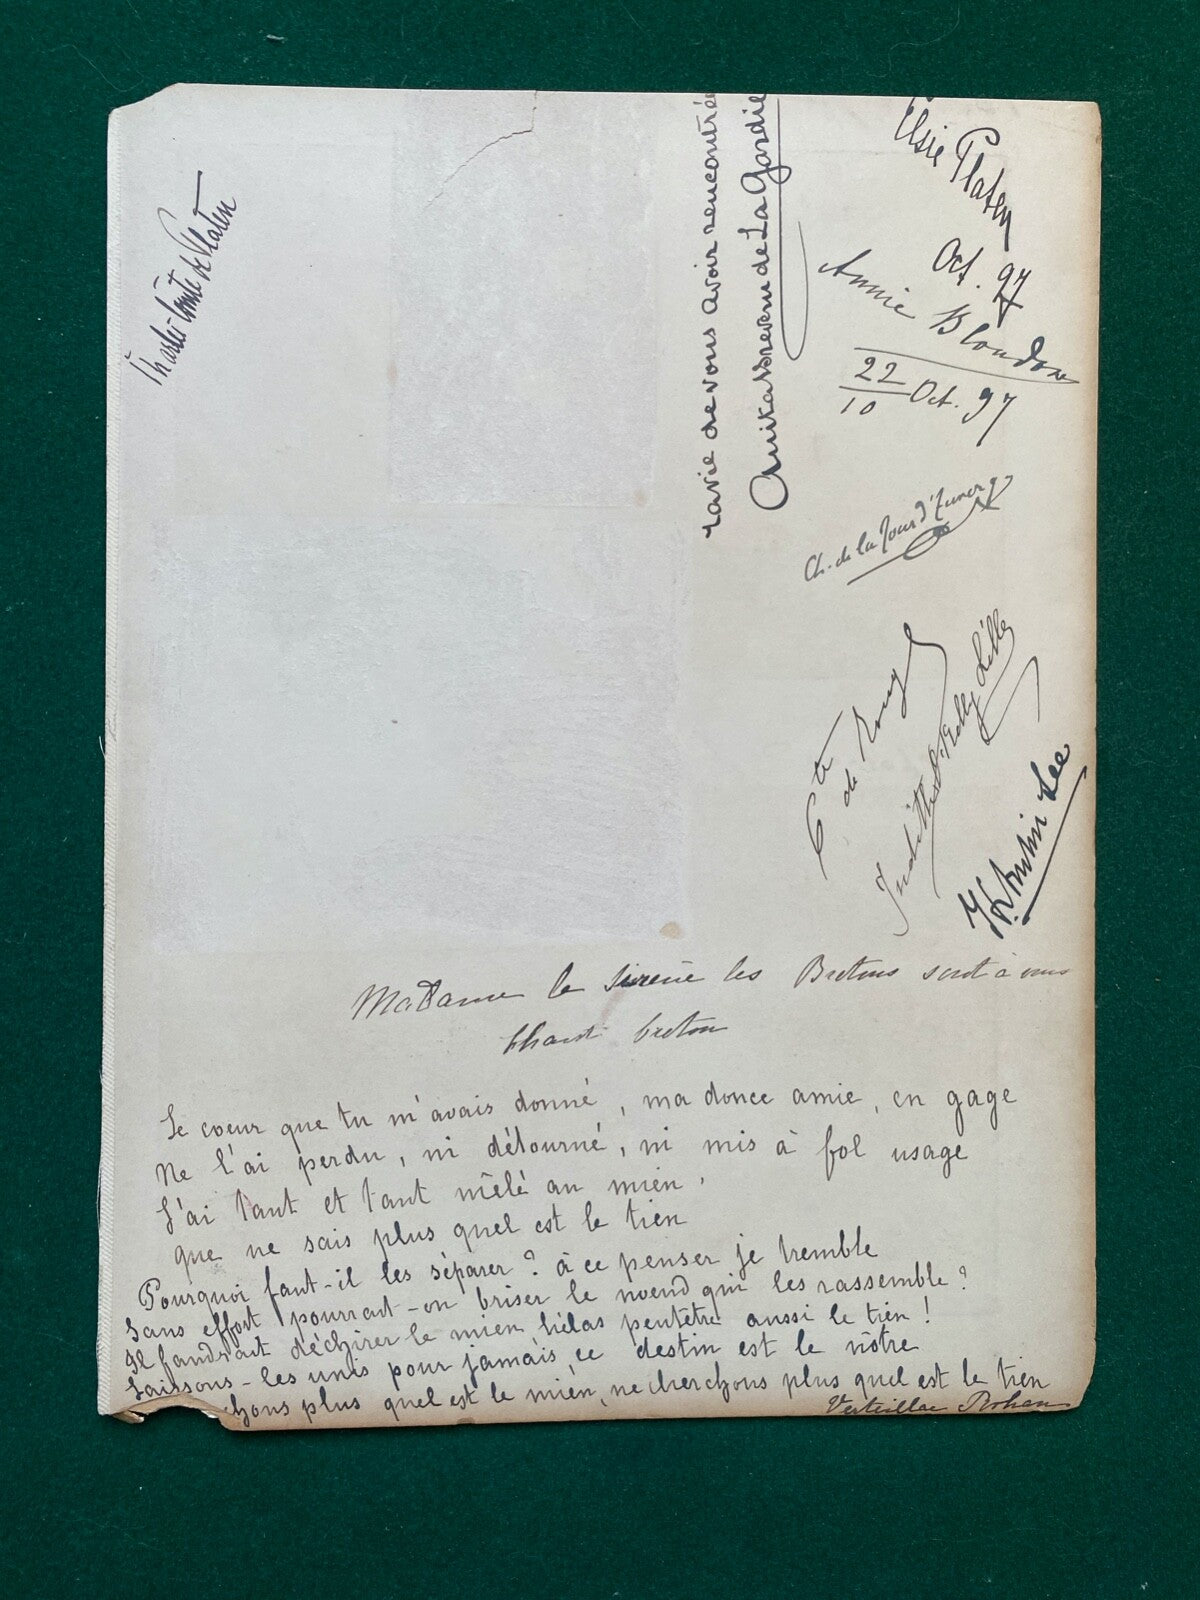 Charles Comte de Platen
ravie de vous avoir rencontrée
Anita de La Gardie
Elsie Platen
Oct. 97
Annie Blondon
22
10 Oct. 97
Ch. de la Tour d'Auverg
Cte
de Rougé
Judith
Lee
Madame la sirène les Bretons sont à vous
Chant breton
Le coeur que tu m'avais donné, ma douce amie, en gage
Ne l'ai perdu, ni détourné, ni mis à fol usage
L'ai tant et tant mêlé au mien,
que ne sais plus quel est le tien
Pourquoi faut-il les séparer? à ce penser je tremble
Sans effort pourrait-on briser le noeud qui les rassemble?
Il faudrait déchirer le mien hélas peutêtre aussi le tien!
Laissons-les unis pour jamais, ce destin est le nôtre
chons plus quel est le mien, ne cherchons plus quel est le tien
Verteillac Rohan